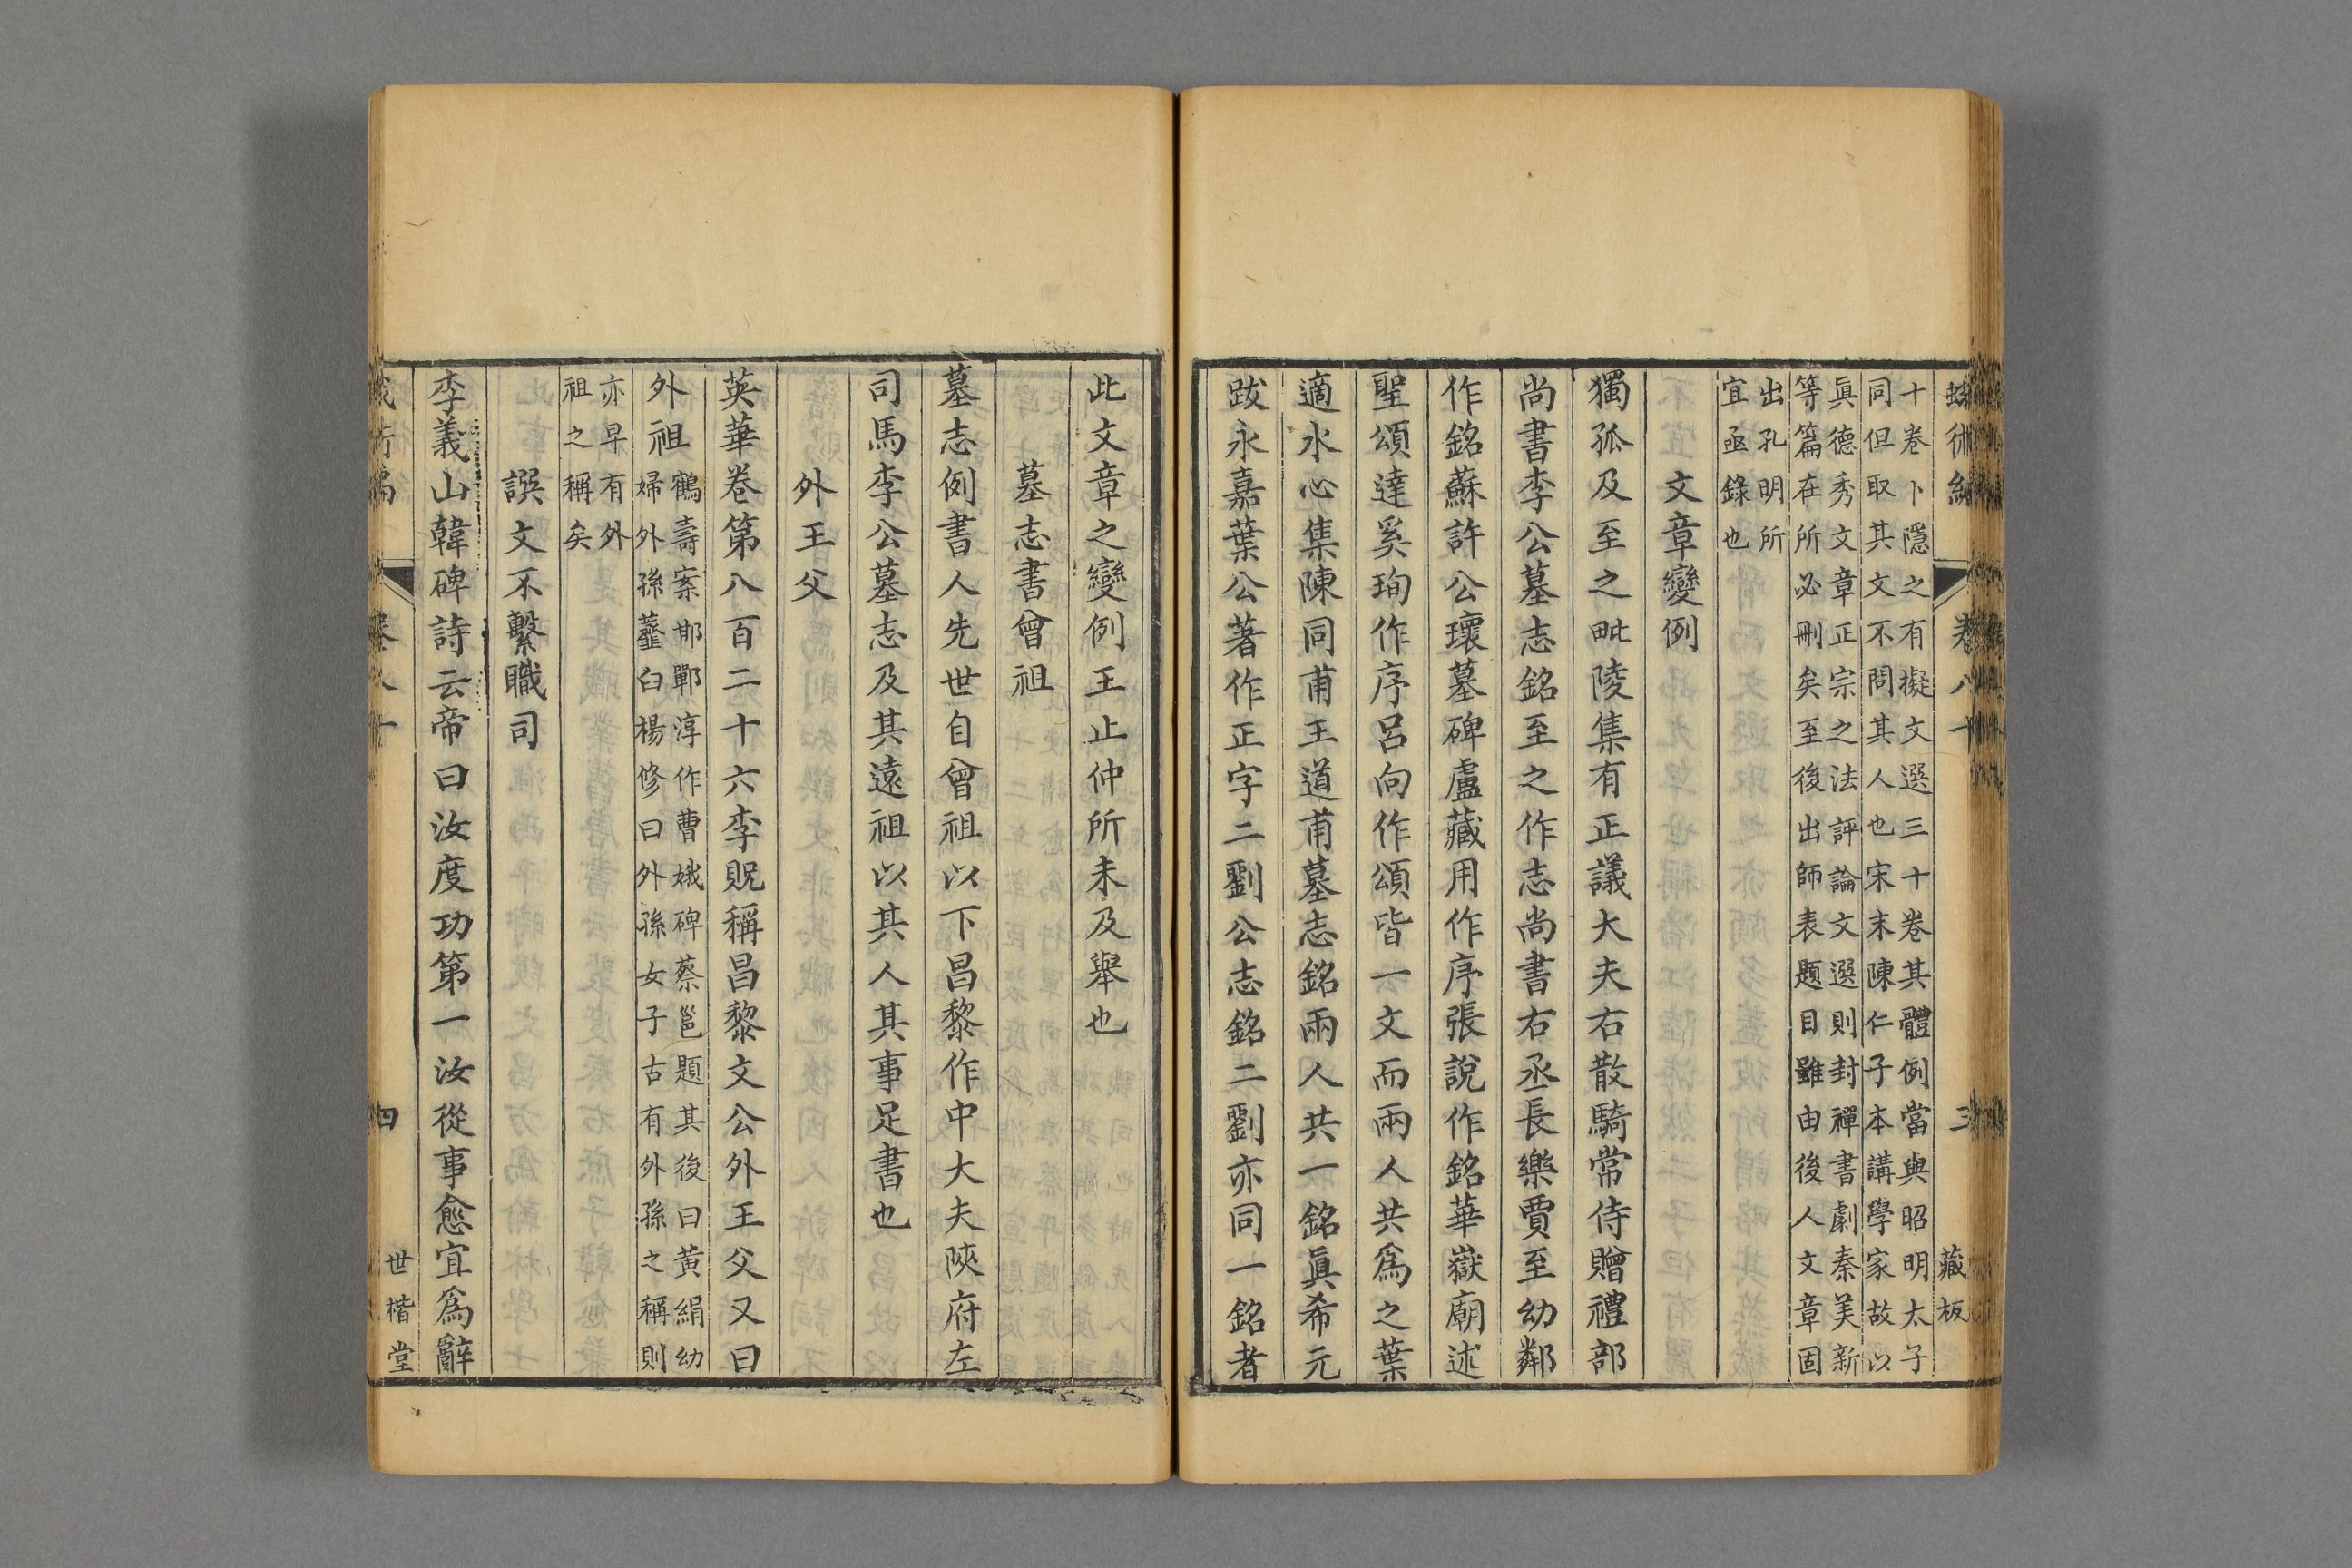 蛾術編 卷八十 三 藏板
十卷卜隱之有擬文選三十卷其體例當與昭明太子
同但取其文不問其人也宋末陳仁子本講學家故以
眞德秀文章正宗之法評論文選則封禪書劇秦美新
等篇在所必刪矣至後出師表題目雖由後人文章固
出孔明所
宜亟錄也
文章變例
獨孤及至之毗陵集有正議大夫右散騎常侍贈禮部
尚書李公墓志銘至之作志尚書右丞長樂賈至幼鄰
作銘蘇許公瓌墓碑盧藏用作序張說作銘華嶽廟述
聖頌達奚珣作序呂向作頌皆一文而兩人共爲之葉
適水心集陳同甫王道甫墓志銘兩人共一銘眞希元
跋永嘉葉公著作正字二劉公志銘二劉亦同一銘者
此文章之變例王止仲所未及舉也
墓志書曾祖
墓志例書人先世自曾祖以下昌黎作中大夫陝府左
司馬李公墓志及其遠祖以其人其事足書也
外王父
英華卷第八百二十六李貺稱昌黎文公外王父又曰
外祖
鶴壽案邯鄲淳作曹娥碑蔡邕題其後曰黃絹幼
婦外孫虀臼楊修曰外孫女子古有外孫之稱則
亦早有外
祖之稱矣
譔文不繫職司
李義山韓碑詩云帝曰汝度功第一汝從事愈宜爲辭
術編 卷八十 四 世楷堂